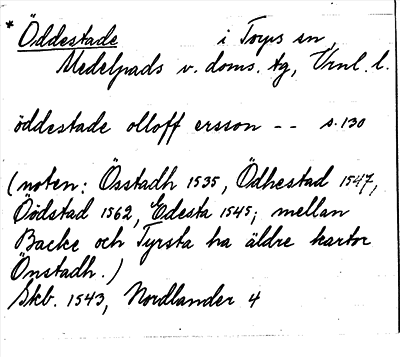 * Öddestade i Torps sn,
Medelpads v. doms. tg, Vrnl. l.
öddestade olloff ersson -- s. 130
(noten: Össtadh 1535, Ödhestad 1547,
Öödstad 1562, Edesta 1545; mellan
Backe och Tyrsta ha äldre kartor
Önstadh.)
Skb. 1543, Nordlander 4